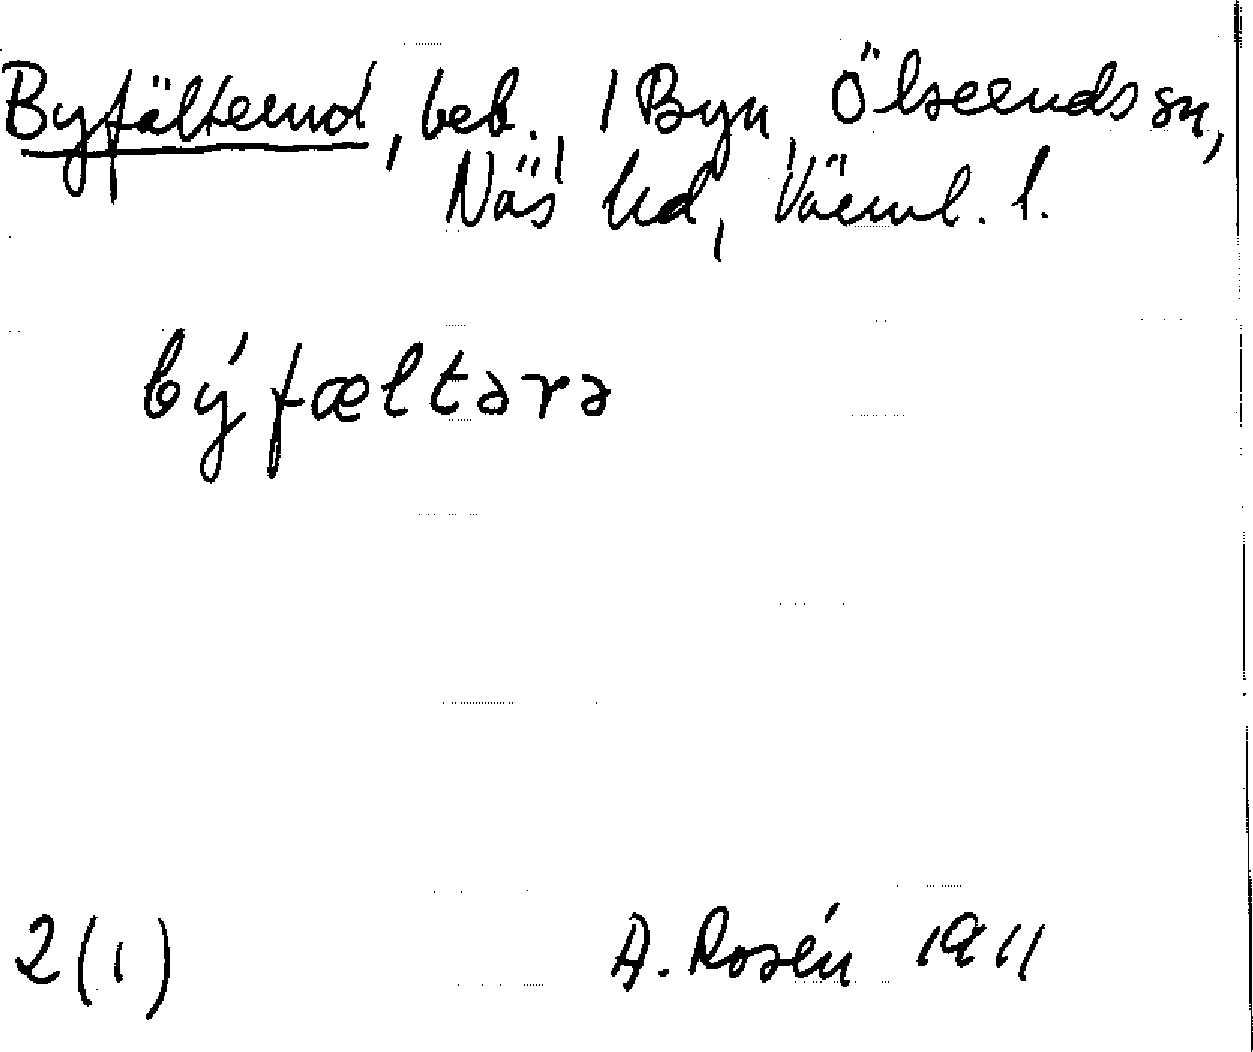 Byfälterud, beb., 1 Byn, Ölserudssn,
Näs hd, Värml. l.
býfæltərə
2(1) A. Rosén 1911